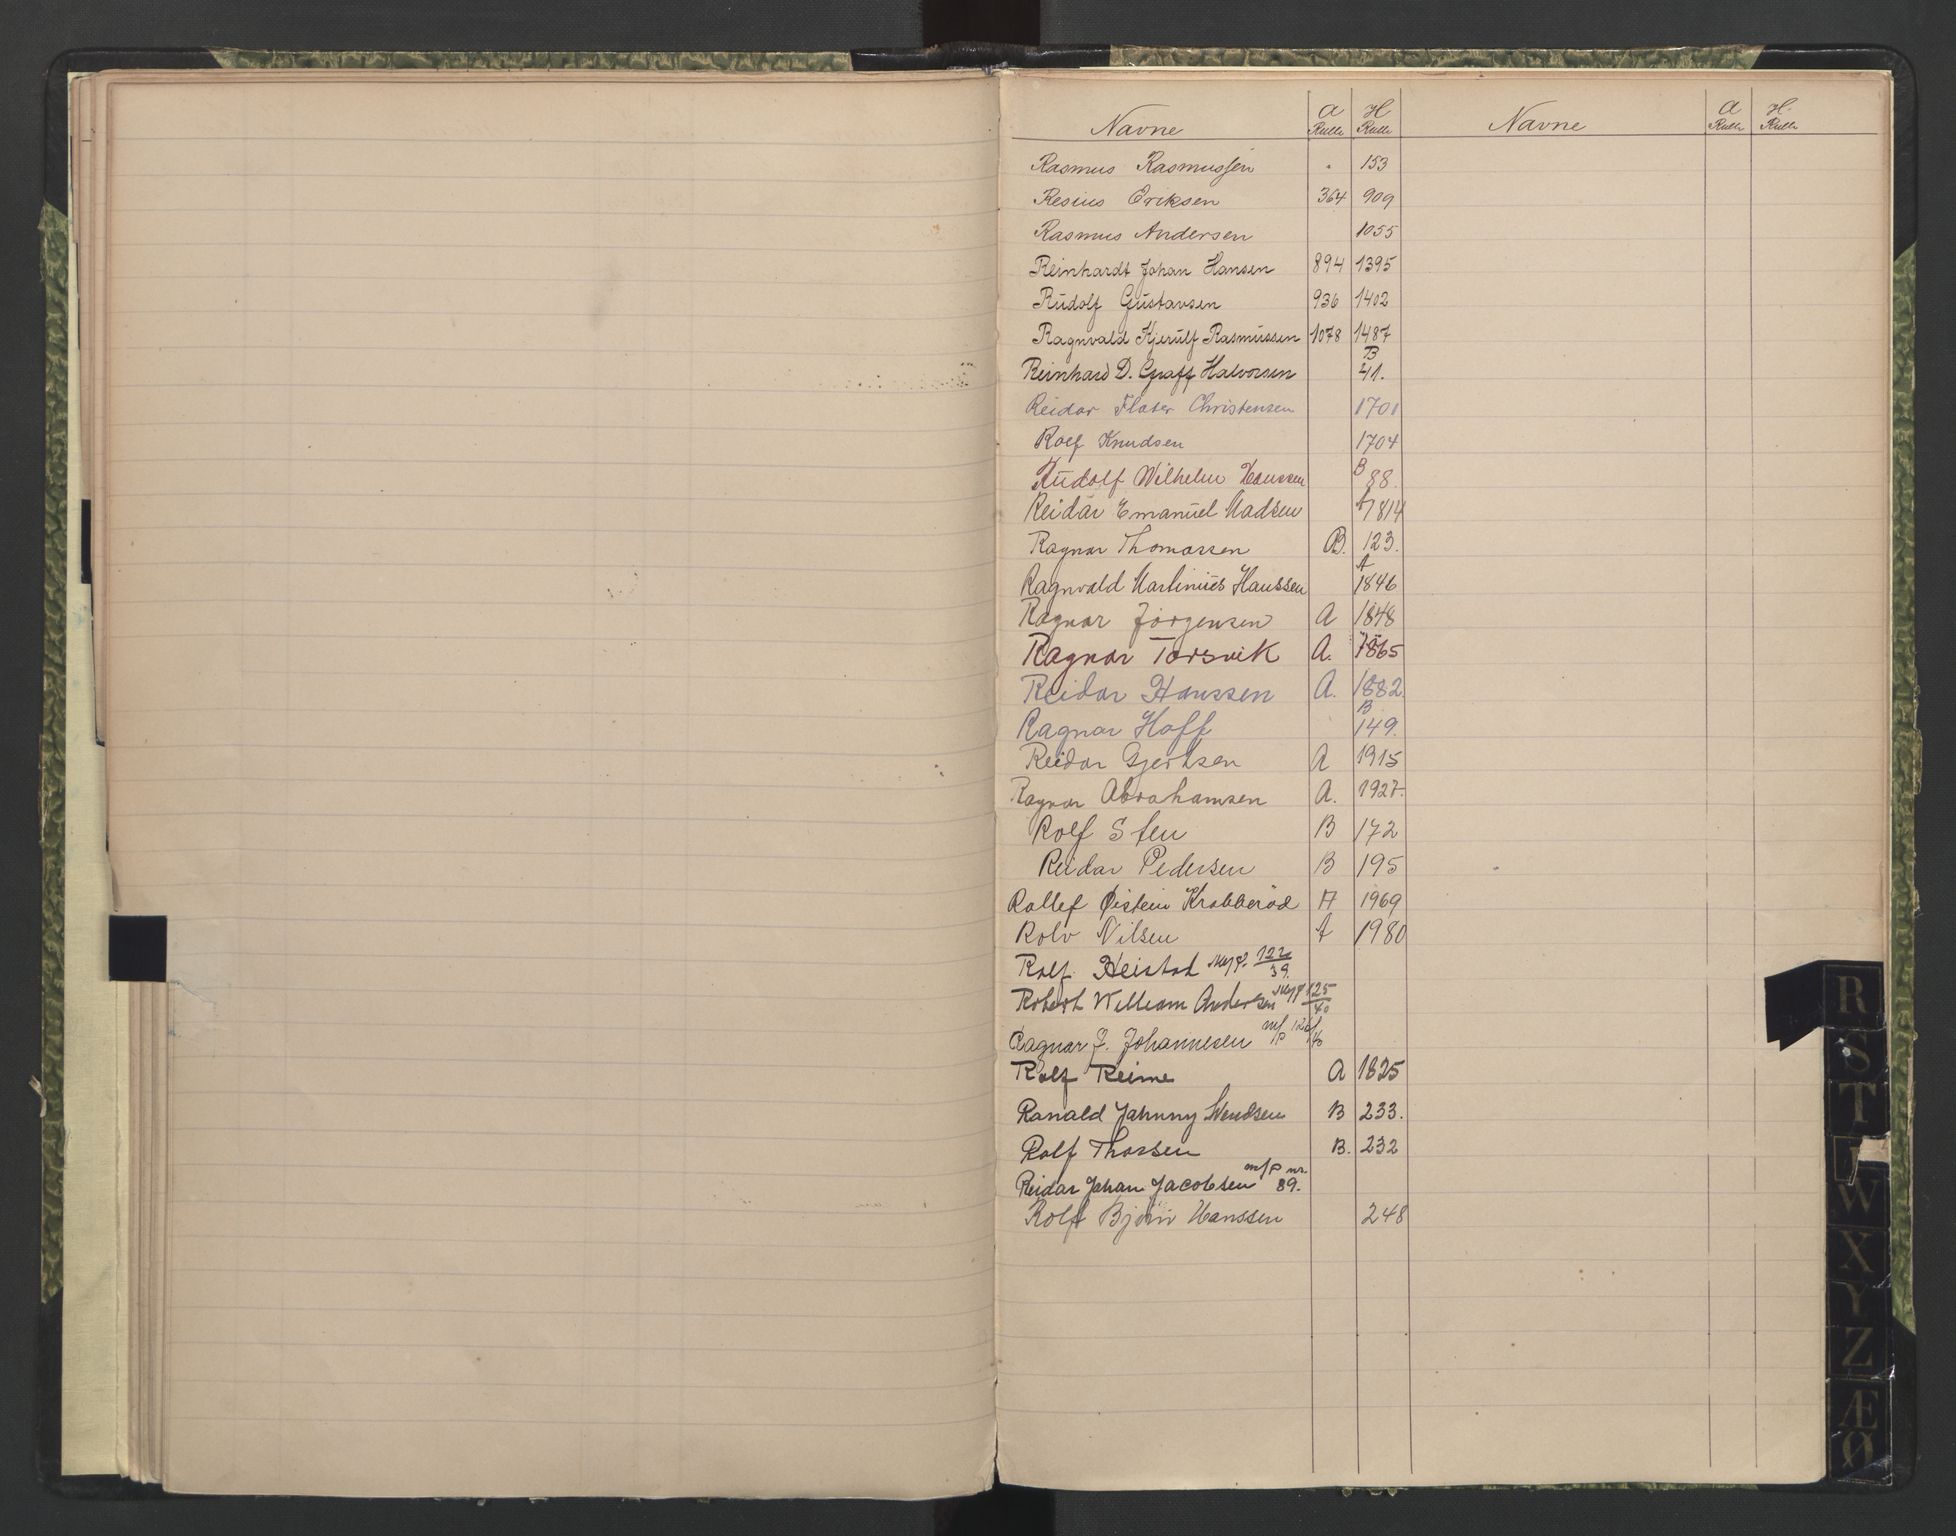 Navne A Rulle H Rulle Navne A Rulle H. Rulle
Rasmus Rasmussen " 153
Resius Eriksen 364 909
Rasmus Andersen 1055
Reinhardt Johan Hansen 894 1395
Rudolf Gustavsen 936 1402
Ragnvald Kjerulf Rasmussen 1078 1487
Reinhard D. Graff Halvorsen B 41.
Reidar Flater Christensen 1701
Rolf Knudsen 1704
Rudolf Wilhelm Hanssen B 88.
Reidar Emanuel Madsen A 1814
Ragnar Thomassen B. 123.
Ragnvald Martinius Hanssen A 1846
Ragnar Jørgensen A 1848
Ragnar Torsvik A. 1865
Reidar Hanssen A. 1882.
Ragnar Hoff B 149.
Reidar Gjertsen A 1915
Ragnar Abrahamsen A. 1927.
Rolf Sten B 172
Reidar Pedersen B 195
Rollef Øistein Krabberød A 1969
Rolv Nilsen A 1980
Rolf Heistad 122/39.
Robert William Andersen 125/40
Ragnar J. Johannesen m/p 126/40
Rolf Reime A 1825
Ranald Johnny Svendsen B 233.
Rolf Thorsen B. 232
Reidar Johan Jacobsen m/p nr. 89.
Rolf Bjørn Hanssen 248
R
S
T
W
X
Y
Z
Æ
Ø